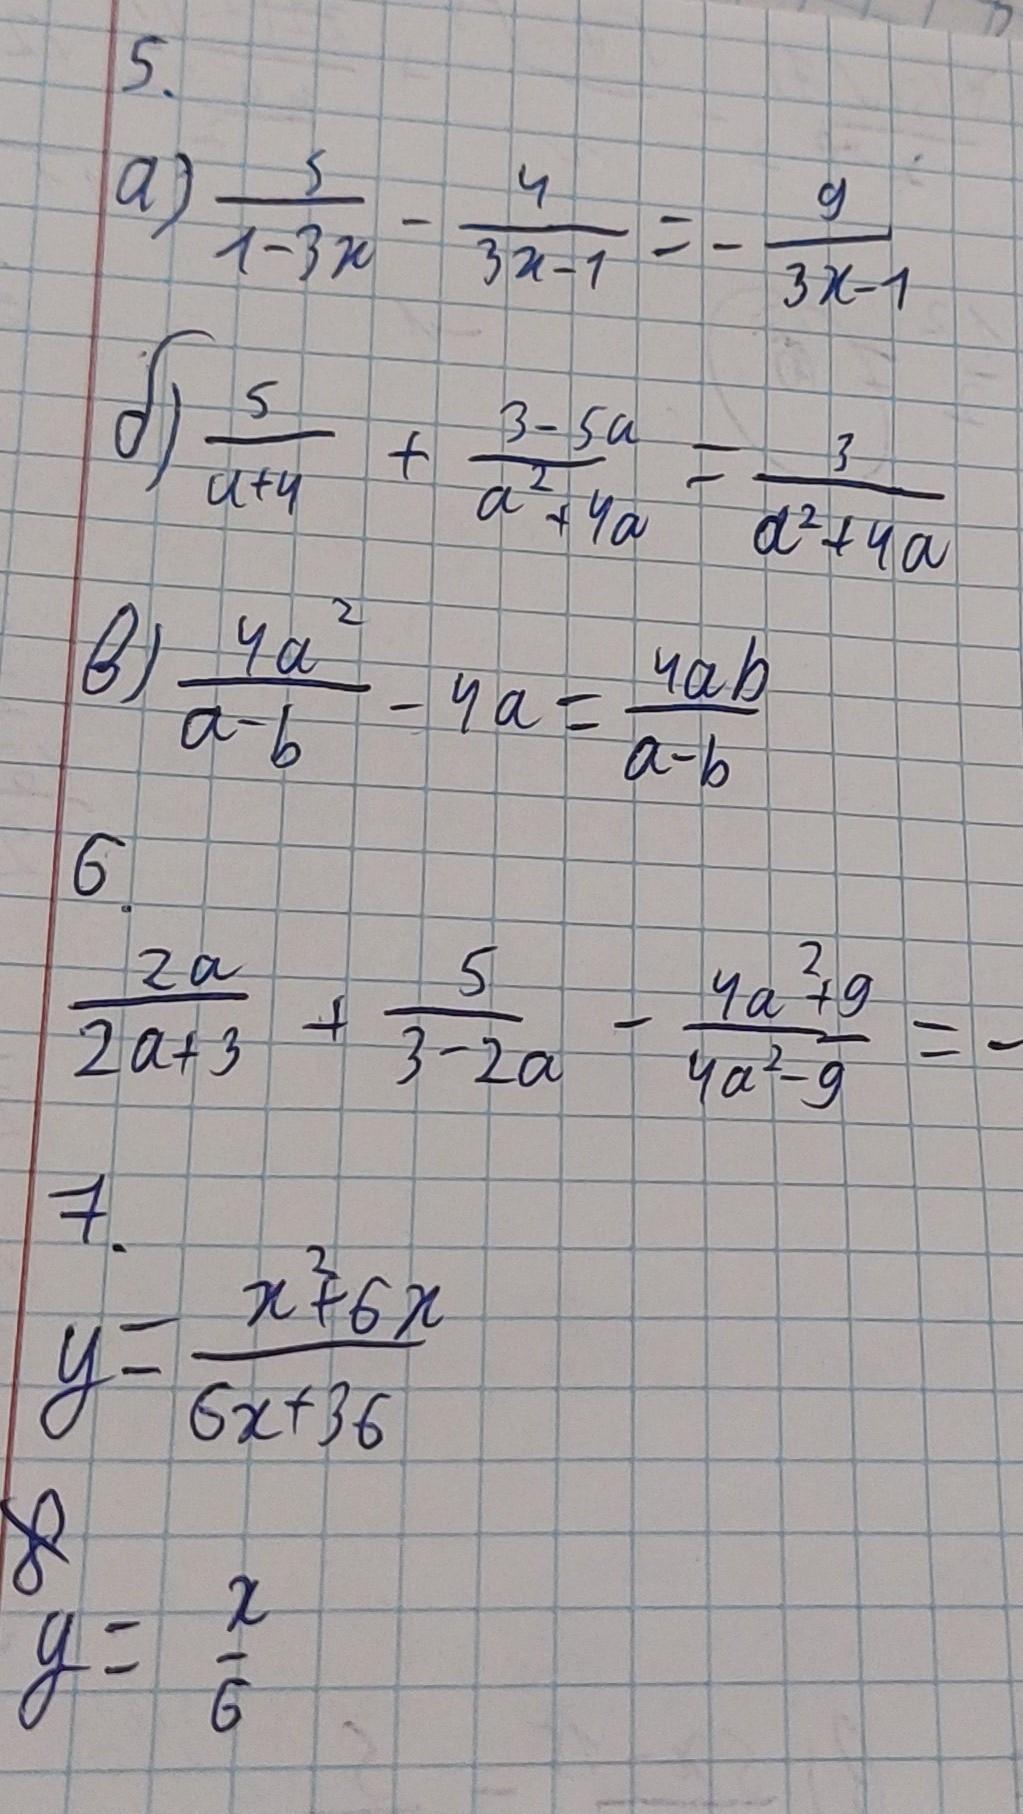 5.
а) 5/(1-3x) - 4/(3x-1) = - 9/(3x-1)
б) 5/(a+4) + (3-5a)/(a²+4a) = 3/(a²+4a)
в) 4a²/(a-b) - 4a = 4ab/(a-b)
6.
2a/(2a+3) + 5/(3-2a) - (4a²+9)/(4a²-9) = -
7.
y = (x²+6x)/(6x+36)
8
y = x/6